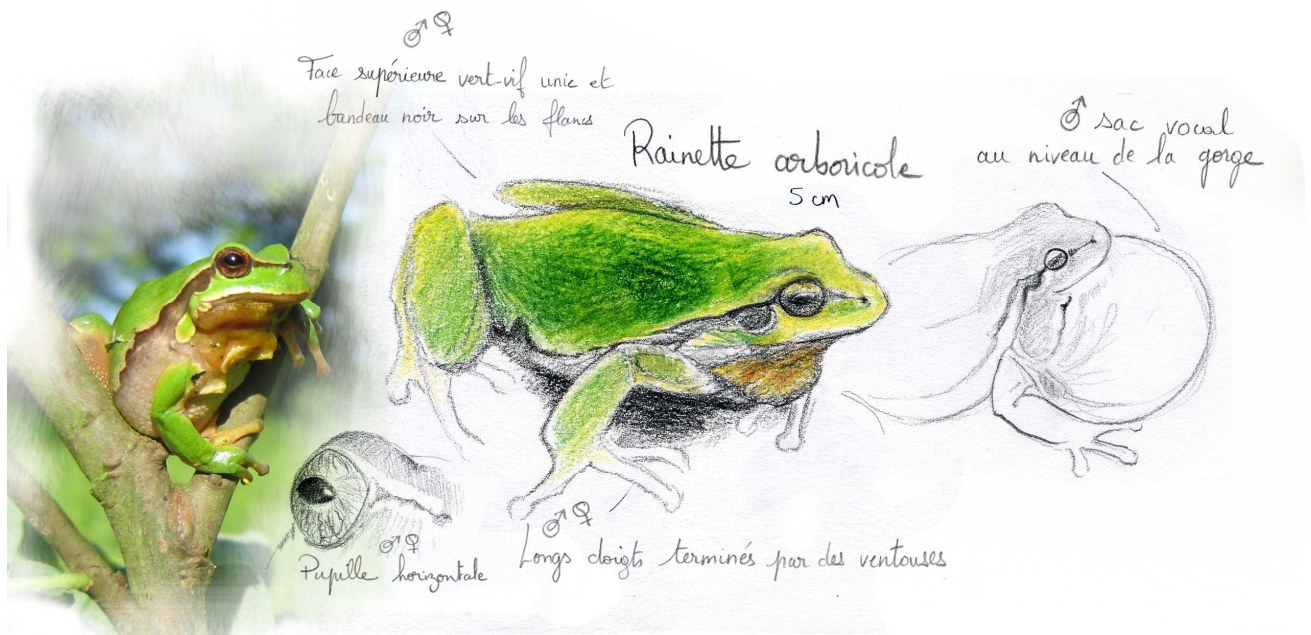 ♂♀
Face supérieure vert-vif unie et
bandeau noir sur les flancs
Rainette arboricole
5 cm
♂ sac vocal
au niveau de la gorge
♂♀
Pupille horizontale
♂♀
Longs doigts terminés par des ventouses